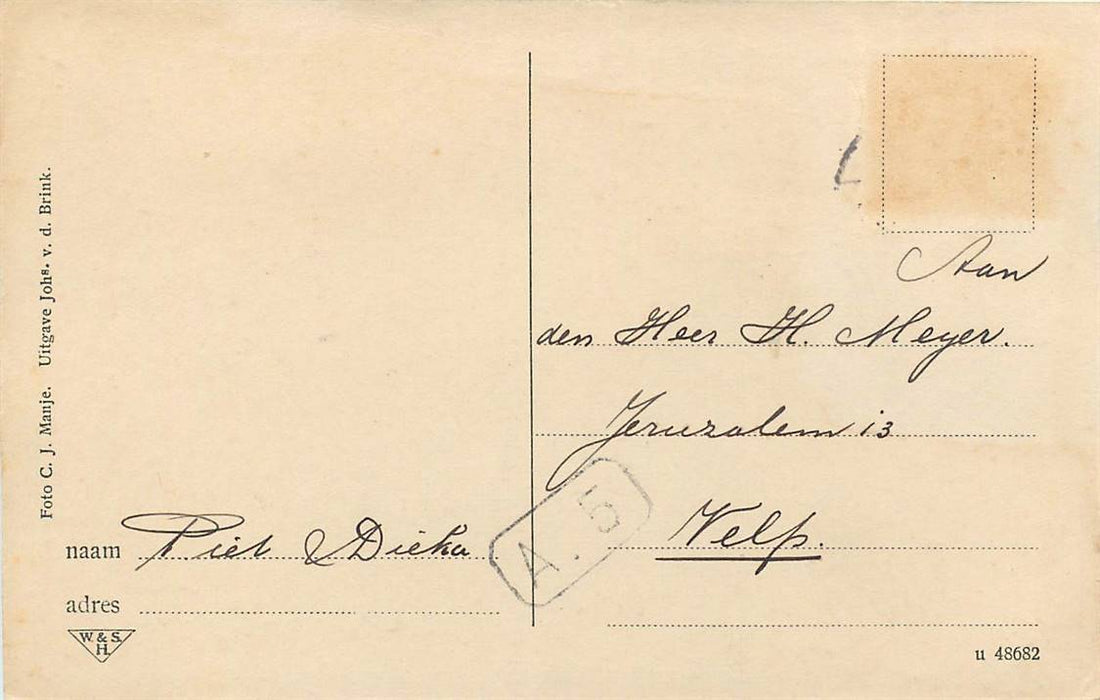 Foto C. J. Manje. Uitgave Johs. v. d. Brink.
Aan
den Heer H. Meyer.
Jeruzalem 13
Velp.
A. 5
naam Piet & Dieka
adres
W. & S.
H.
u 48682